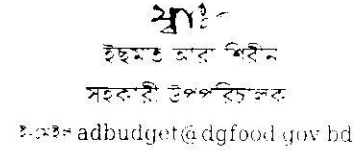 স্বাঃ-
ইছমত আরা শিরীন
সহকারী উপপরিচালক
ই-মেইলঃ adbudget@dgfood.gov.bd